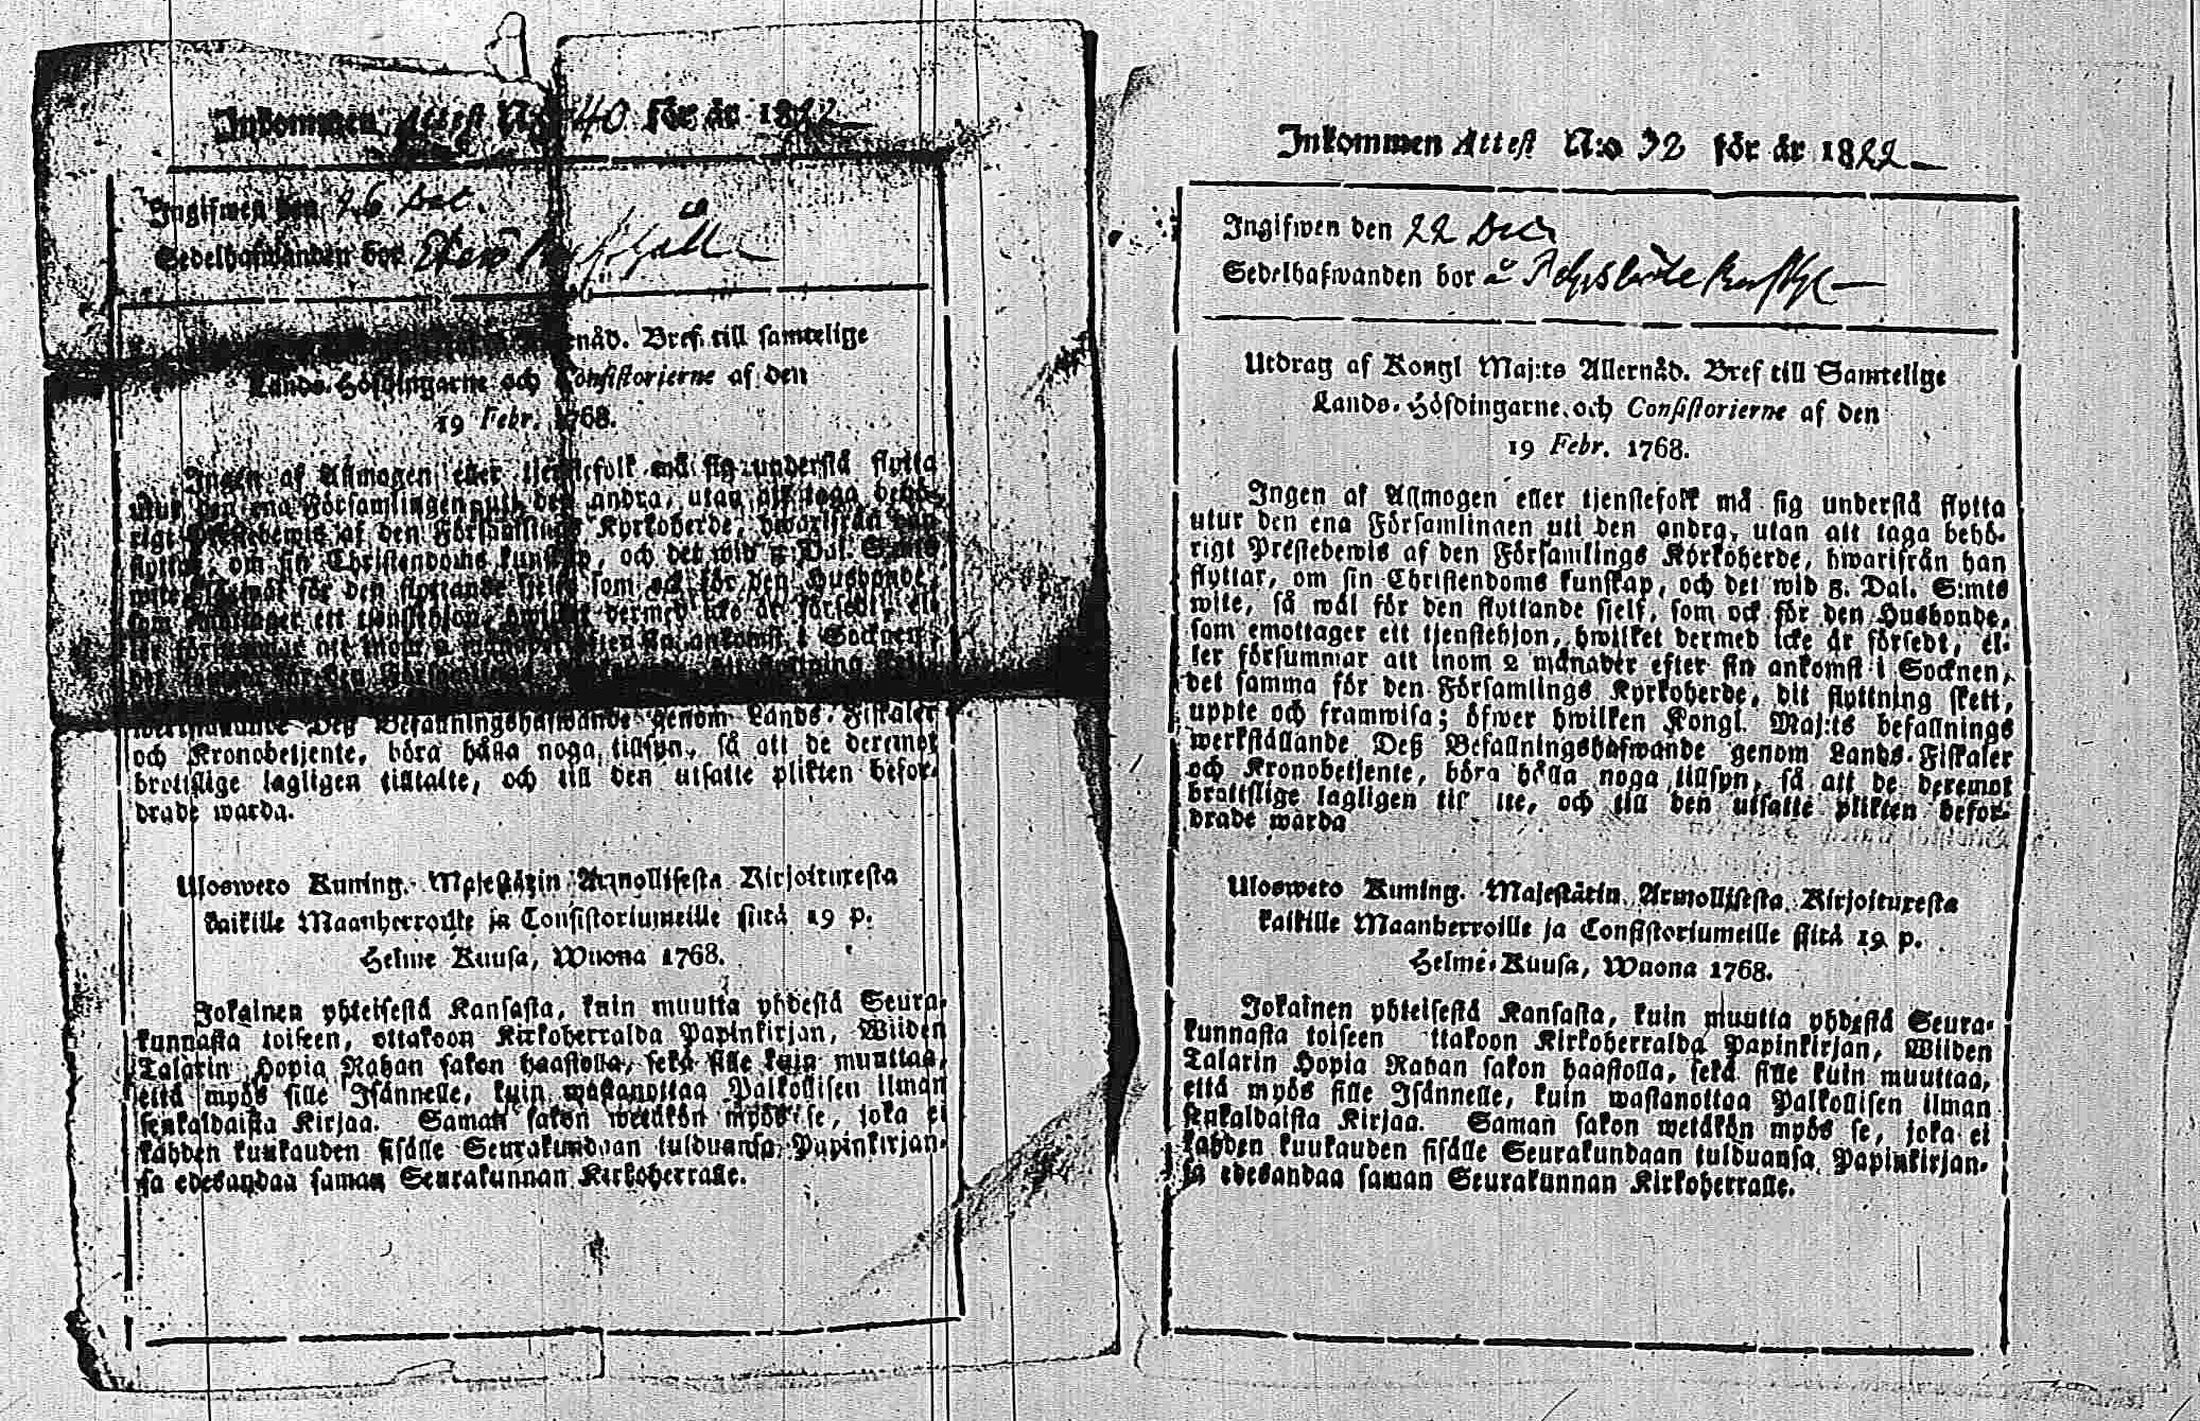 Inkommen Attest N:o 40 för år 1822
Ingifwen den 26 Dec.
Sedelhafwanden bor
nåd. Bref till samtelige
Lands-Höfdingarne och Consistorierne af den
19 Febr. 1768.
Ingen af Allmogen eller tjenstefolk må sig understå flytta
utur den ena Församlingen uti den andra, utan att taga behö-
rigt Prestebewis af den Församlings Kyrkoherde, hwarifrån han
flyttar, om sin Christendoms kunskap, och det wid 5. Dal. S:mts
wite, för den flyttande sielf, som ock för den Husbonde,
som emottager ett tjenstehjon, hwilket dermed icke är försedt, el-
ler försummar att inom 2 månader efter sin ankomst i Socknen,
det samma för den Församlings
werkställande Deß Befallningshafwande genom Lands-Fiskaler
och Kronobetjente, böra hålla noga tillsyn, så att de deremot
brottslige lagligen tilltalte, och till den utsatte plikten befor-
drade warda.
Ulosweto Kuning. Majestätin Armollisesta Kirjoituxesta
kaikille Maanherroille ja Consistoriumeille siitä 19 p.
Helme Kuusa, Wuona 1768.
Jokainen yhteisestä Kansasta, kuin muutta yhdestä Seura-
kunnasta toiseen, ottakoon Kirkoherralda Papinkirjan, Wiiden
Talarin Hopia Rahan sakon haastolla, sekä sille kuin muuttaa,
että myös sille Isännelle, kuin wastanottaa Palkollisen ilman
senkaldaista Kirjaa. Saman sakon wetäkön myös se, joka ei
kahden kuukauden sisälle Seurakundaan tulduansa Papinkirjan-
sa edesandaa saman Seurakunnan Kirkoherralle.
Inkommen Attest N:o 32 för år 1822
Ingifwen den 22 Dec
Sedelhafwanden bor å
Utdrag af Kongl Maj:ts Allernåd. Bref till Samtelige
Lands-Höfdingarne och Consistorierne af den
19 Febr. 1768.
Ingen af Allmogen eller tjenstefolk må sig understå flytta
utur den ena Församlingen uti den andra, utan att taga behö-
rigt Prestebewis af den Församlings Kyrkoherde, hwarifrån han
flyttar, om sin Christendoms kunskap, och det wid 5. Dal. S:mts
wite, så wäl för den flyttande sielf, som ock för den Husbonde,
som emottager ett tjenstehjon, hwilket dermed icke är försedt, el-
ler försummar att inom 2 månader efter sin ankomst i Socknen,
det samma för den Församlings Kyrkoherde, dit flyttning skett,
uppte och framwisa; öfwer hwilken Kongl. Maj:ts befallnings
werkställande Deß Befallningshafwande genom Lands-Fiskaler
och Kronobetjente, böra hålla noga tillsyn, så att de deremot
brottslige lagligen til lte, och till den utsatte plikten befor-
drade warda
Ulosweto Kuning. Majestätin Armollisesta Kirjoituxesta
kaikille Maanherroille ja Consistoriumeille siitä 19 p.
Helme-Kuusa, Wuona 1768.
Jokainen yhteisestä Kansasta, kuin muutta yhdestä Seura-
kunnasta toiseen ttakoon Kirkoherralda Papinkirjan, Wiiden
Talarin Hopia Rahan sakon haastolla, sekä sille kuin muuttaa,
että myös sille Isännelle, kuin wastanottaa Palkollisen ilman
senkaldaista Kirjaa. Saman sakon wetäkön myös se, joka ei
kahden kuukauden sisälle Seurakundaan tulduansa Papinkirjan-
sa edesandaa saman Seurakunnan Kirkoherralle.